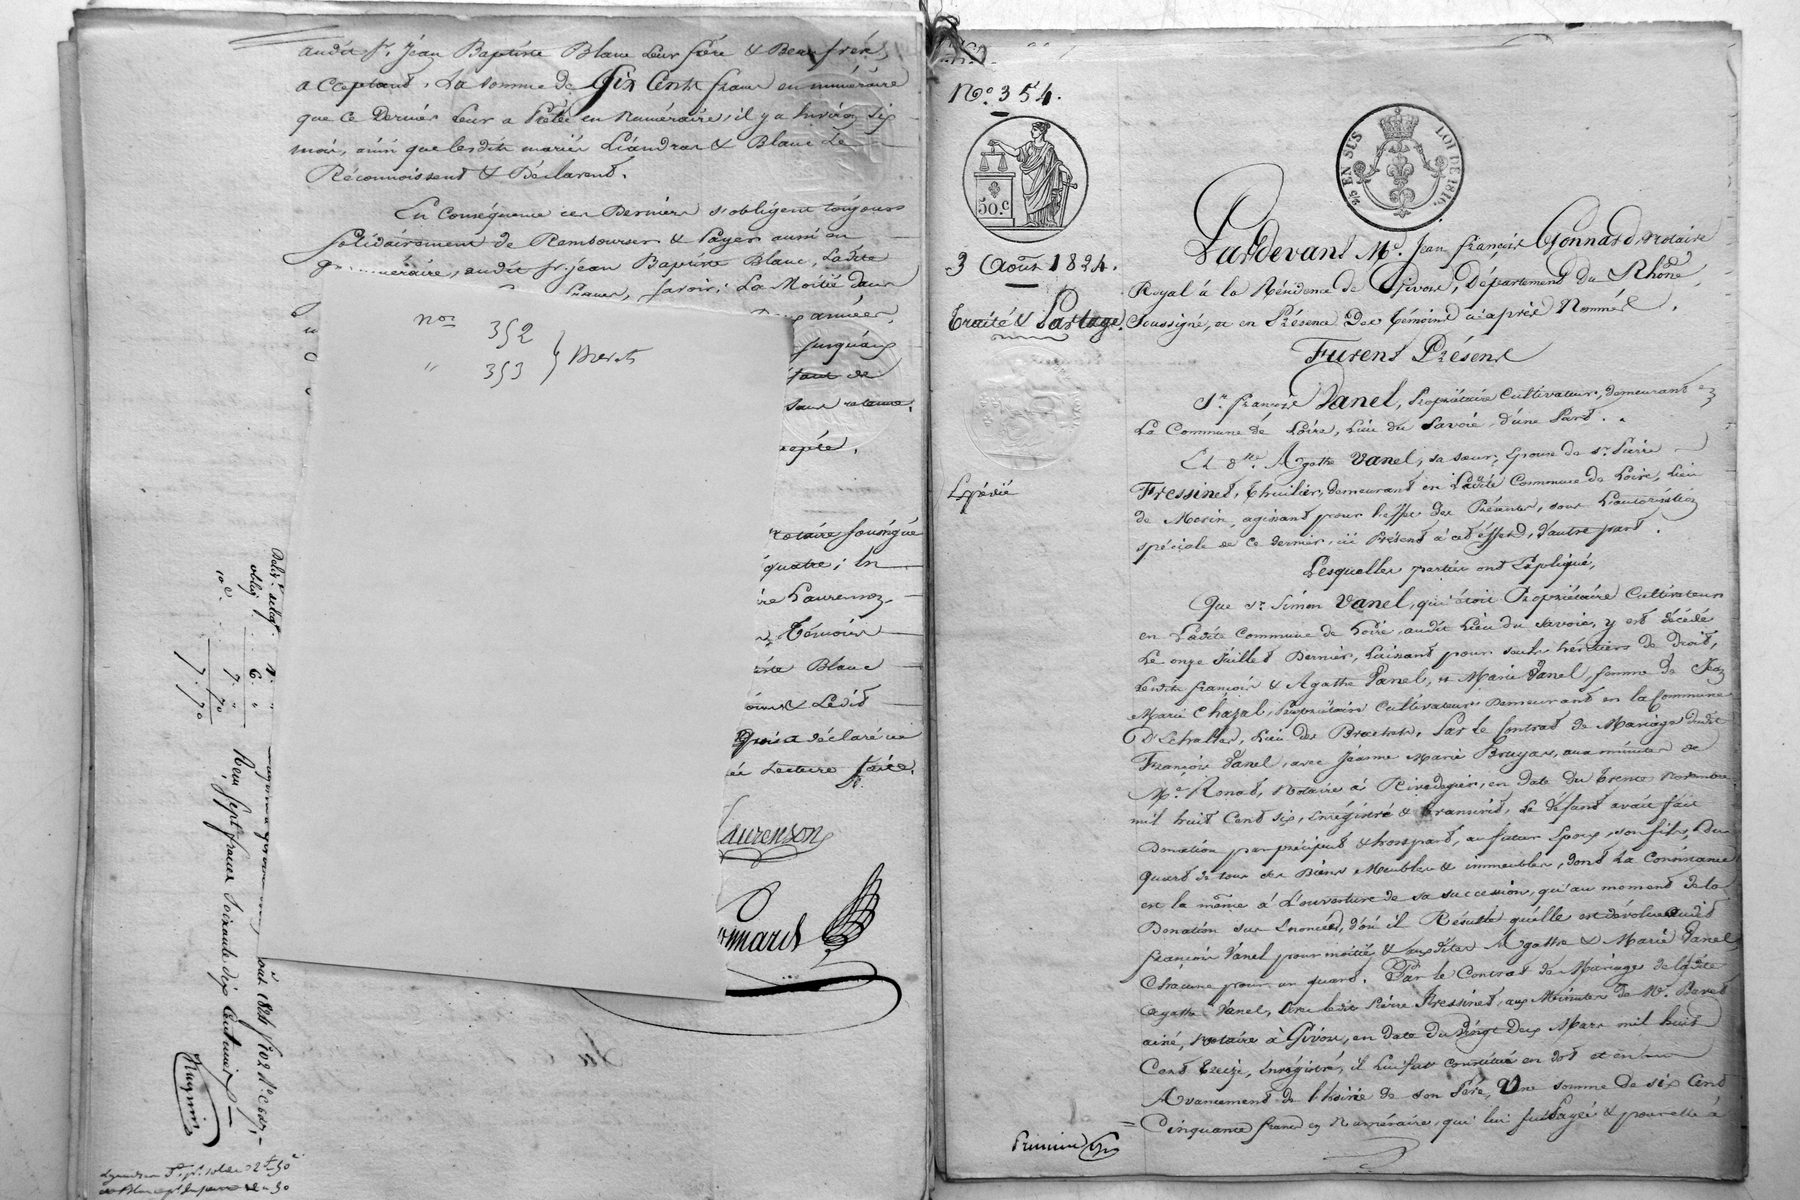 audit Sr. Jean Baptiste Blanc leur frère & Beau frère,
acceptant, La Somme de Six Cents francs en numéraire
que ce Dernier Leur a Prêtée en Numéraire, il y a Environ Six
mois, ainsi que lesdits mariés Liandras & Blanc Le
Réconnoissent & Déclarent.
En Conséquence ces Derniers s'obligent toujours
Solidairement de Rembourser & Payer aussi en
numéraire, audit Sr. jean Baptiste Blanc, Ladite
francs, Savoir; La Moitié dans
années,
jusquaux
de
sans retenue,
notaire soussigné
quatre; En
Laurenson
Témoins
Blanc
& Ledit
Quoi a déclaré ne
Lecture faite.
Laurenson
onnard
nos 352
" 353 } Brevets
oblig. 6. "
7. 70
7. 70
Reçu Sept francs Soixante dix Centimes
août 1824 fo 102
Hugnin
No. 354.
50.c
25 EN SUS
LOI DE 1816
3 Août 1824.
Traité & Partage.
Expédié
Pardevant Me. Jean françois Gonnard, Notaire
Royal à la Résidence de Givors, Département du Rhône,
Soussigné, et en Présence Des Témoins ci après Nommés.
Furent Présens
Sr. françois Vanel, Propriétaire Cultivateur, demeurant en
La Commune de Loire, Lieu du Savoie, d'une Part.
Et dme. Agathe Vanel, sa sœur, épouse de Sr. Pierre
Fressinet, Thuilier, demeurant en Ladite Commune de Loire, Lieu
de Morin, agissant pour l'effet des Présentes, sous L'autorisation
spéciale de ce dernier, ici Présent à cet Effet, d'autre part.
Lesquelles parties ont Expliqué,
Que Sr. Simon Vanel, qui étoit Propriétaire Cultivateur
en Ladite Commune de Loire, audit Lieu du Savoie, y est décédé
Le onze Juillet Dernier, Laissant pour seuls héritiers de Droit,
Lesdits françois & Agathe Vanel, et Marie Vanel, femme de Jean
Marie Chazal, Propriétaire Cultivateur Demeurant en la Commune
D'Echallas, Lieu des Par le Contrat de Mariage dudit
François Vanel, avec Jeanne Marie Bruyas, aux minutes de
Me. Ronat, Notaire à Rivedegier, en Date du trente Novembre
mil huit Cent six, Enrégistré & transcrit, Le défunt avait fait
Donation par préciput & hors part, au futur Epoux, son fils, Du
Quart de tous ses Biens Meubles & immeubles, dont La Consistance
est la même à L'ouverture de sa succession, qu'au moment de la
Donation sus Enoncée, d'où il Résulte qu'elle est dévolue audit
françois Vanel pour moitié, & auxdites Agathe & Marie Vanel
Chacune pour un quart. Par le Contrat de Mariage de ladite
Agathe Vanel, avec ledit Pierre Fressinet, aux Minutes de Me.
ainé, Notaire à Givors, en Date du Vingt Deux Mars mil huit
Cent treize, Enrégistré, il lui fut constitué en dot et en
Avancement de l'hoirie de son Père, Une somme de six Cent
Cinquante francs en Numéraire, qui lui fut Payée & pour elle à